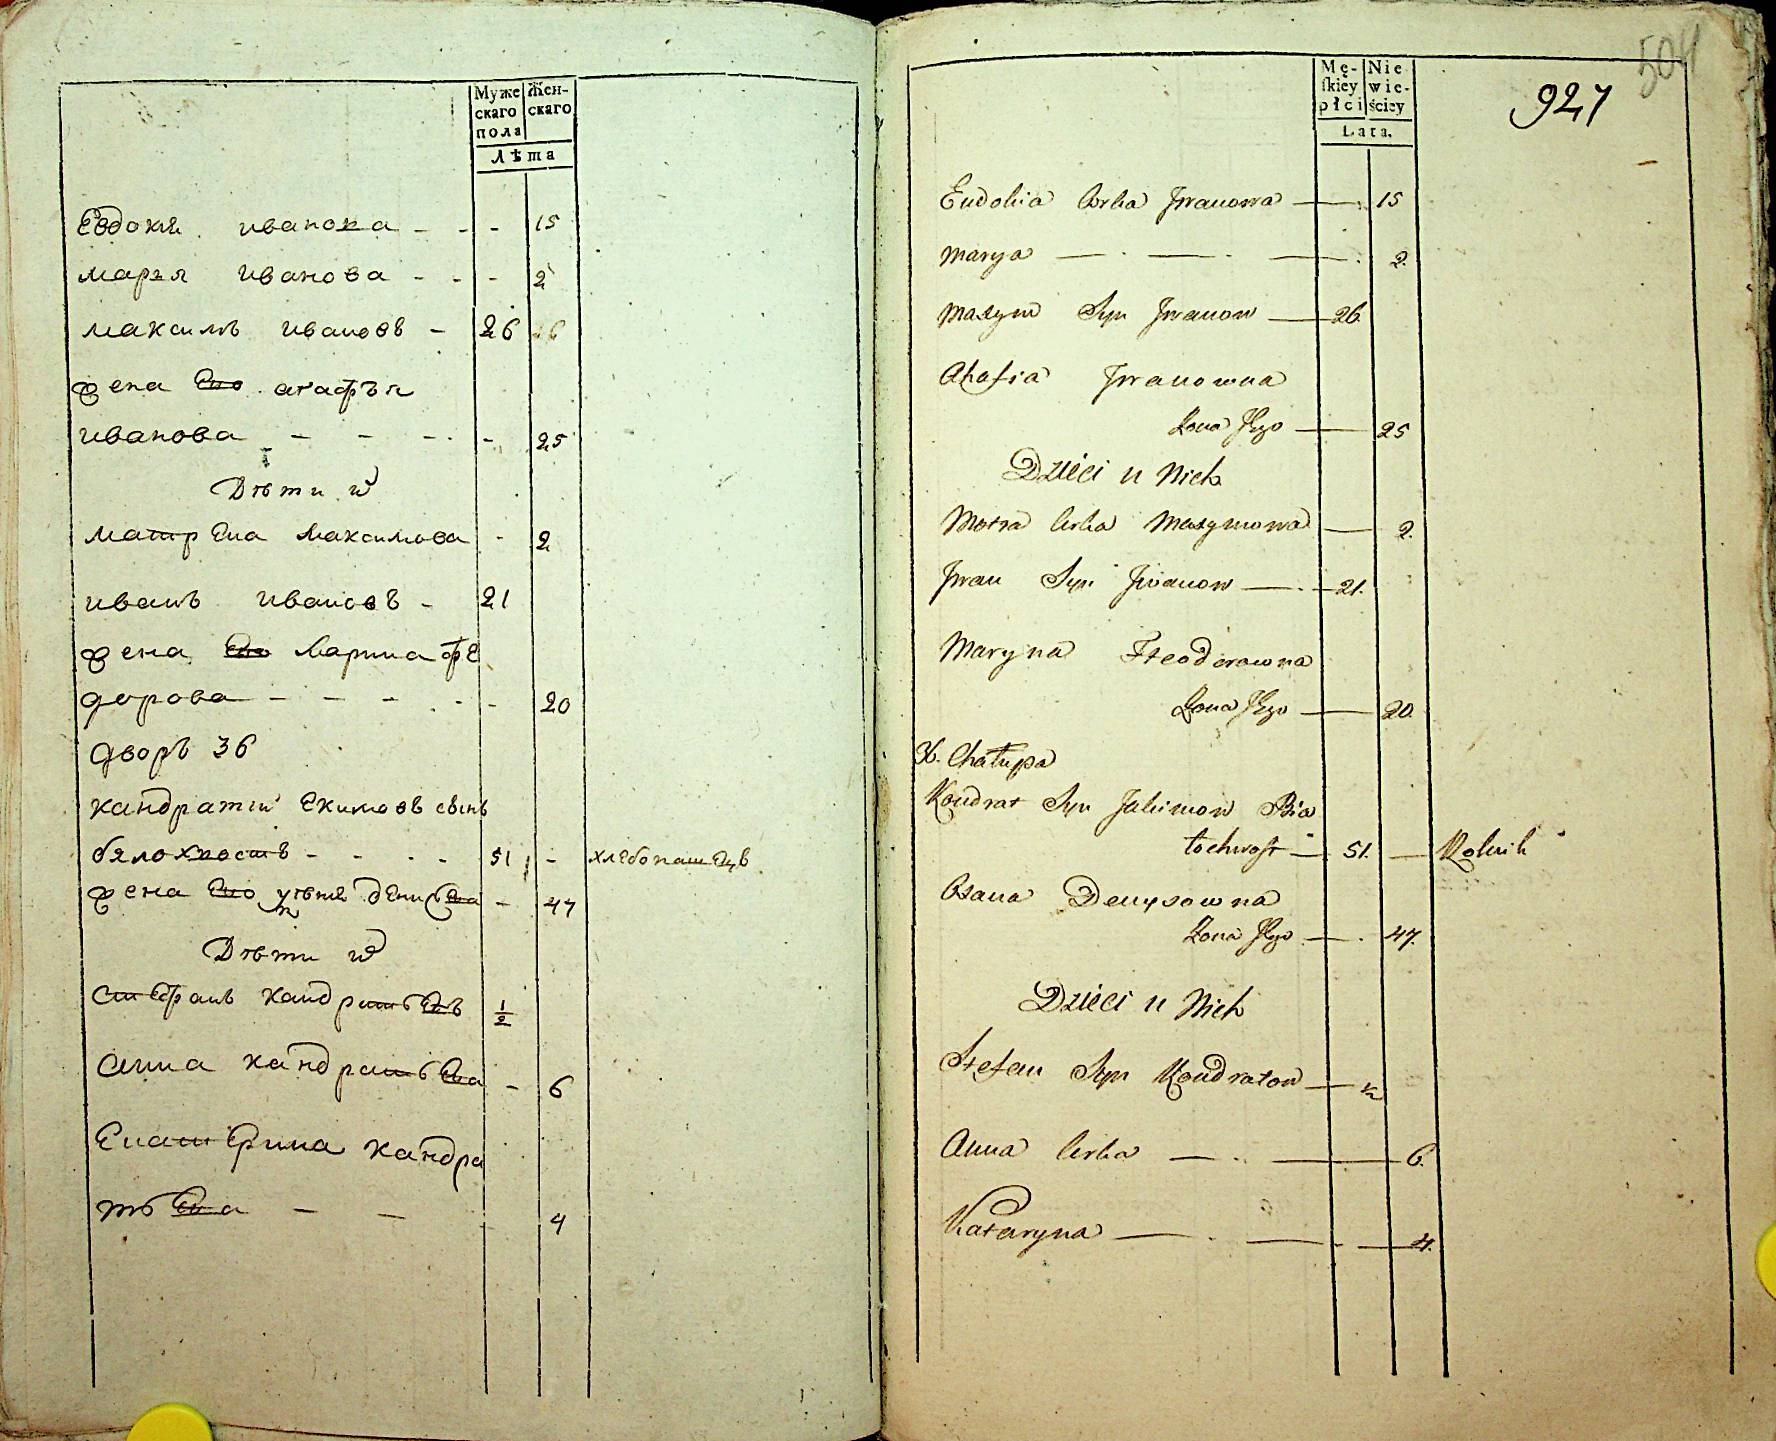 Муже скаго пола
Жен- скаго
Лѣта
Евдокия иванова - - - 15
марья иванова - - - 2
максимъ ивановъ - 26
жена его агафья
иванова - - - - 25
Дѣти их
матрена максимова - 2
иванъ ивановъ - 21
жена его марина фе
дорова - - - - - 20
дворъ 36
кандратий екимовъ сынъ
бялохвостъ - - - - 51 - хлебопашецъ
жена его денисова - 47
Дѣти их
стефанъ кандратьевъ 1/2
анна кандратьева - 6
Екатерина кандра
тьева - - 4
504
927
Mę- skiey płci
Nie wie- ściey
Lata.
Eudokia Corka Jwanowa — 15
Marya — . — . — . 2.
Maxym Syn Jwanow — 26.
Ahafia Jwanowna
Żona Jego — 25
Dzieci u Nich
Motra Corka Maxymowa — 2.
Jwan Syn Jwanow — . — 21.
Maryna Fteodorowna
Żona Jego — 20.
36. Chałupa
Kondrat Syn Jakimow Bia
łochwost — 51. — Rolnik
Oxana Denysowna
Żona Jego — . 47.
Dzieci u Nich
Stefan Syn Kondratow — 1/2
Anna Corka — . — 6.
Kataryna — . — . — 4.